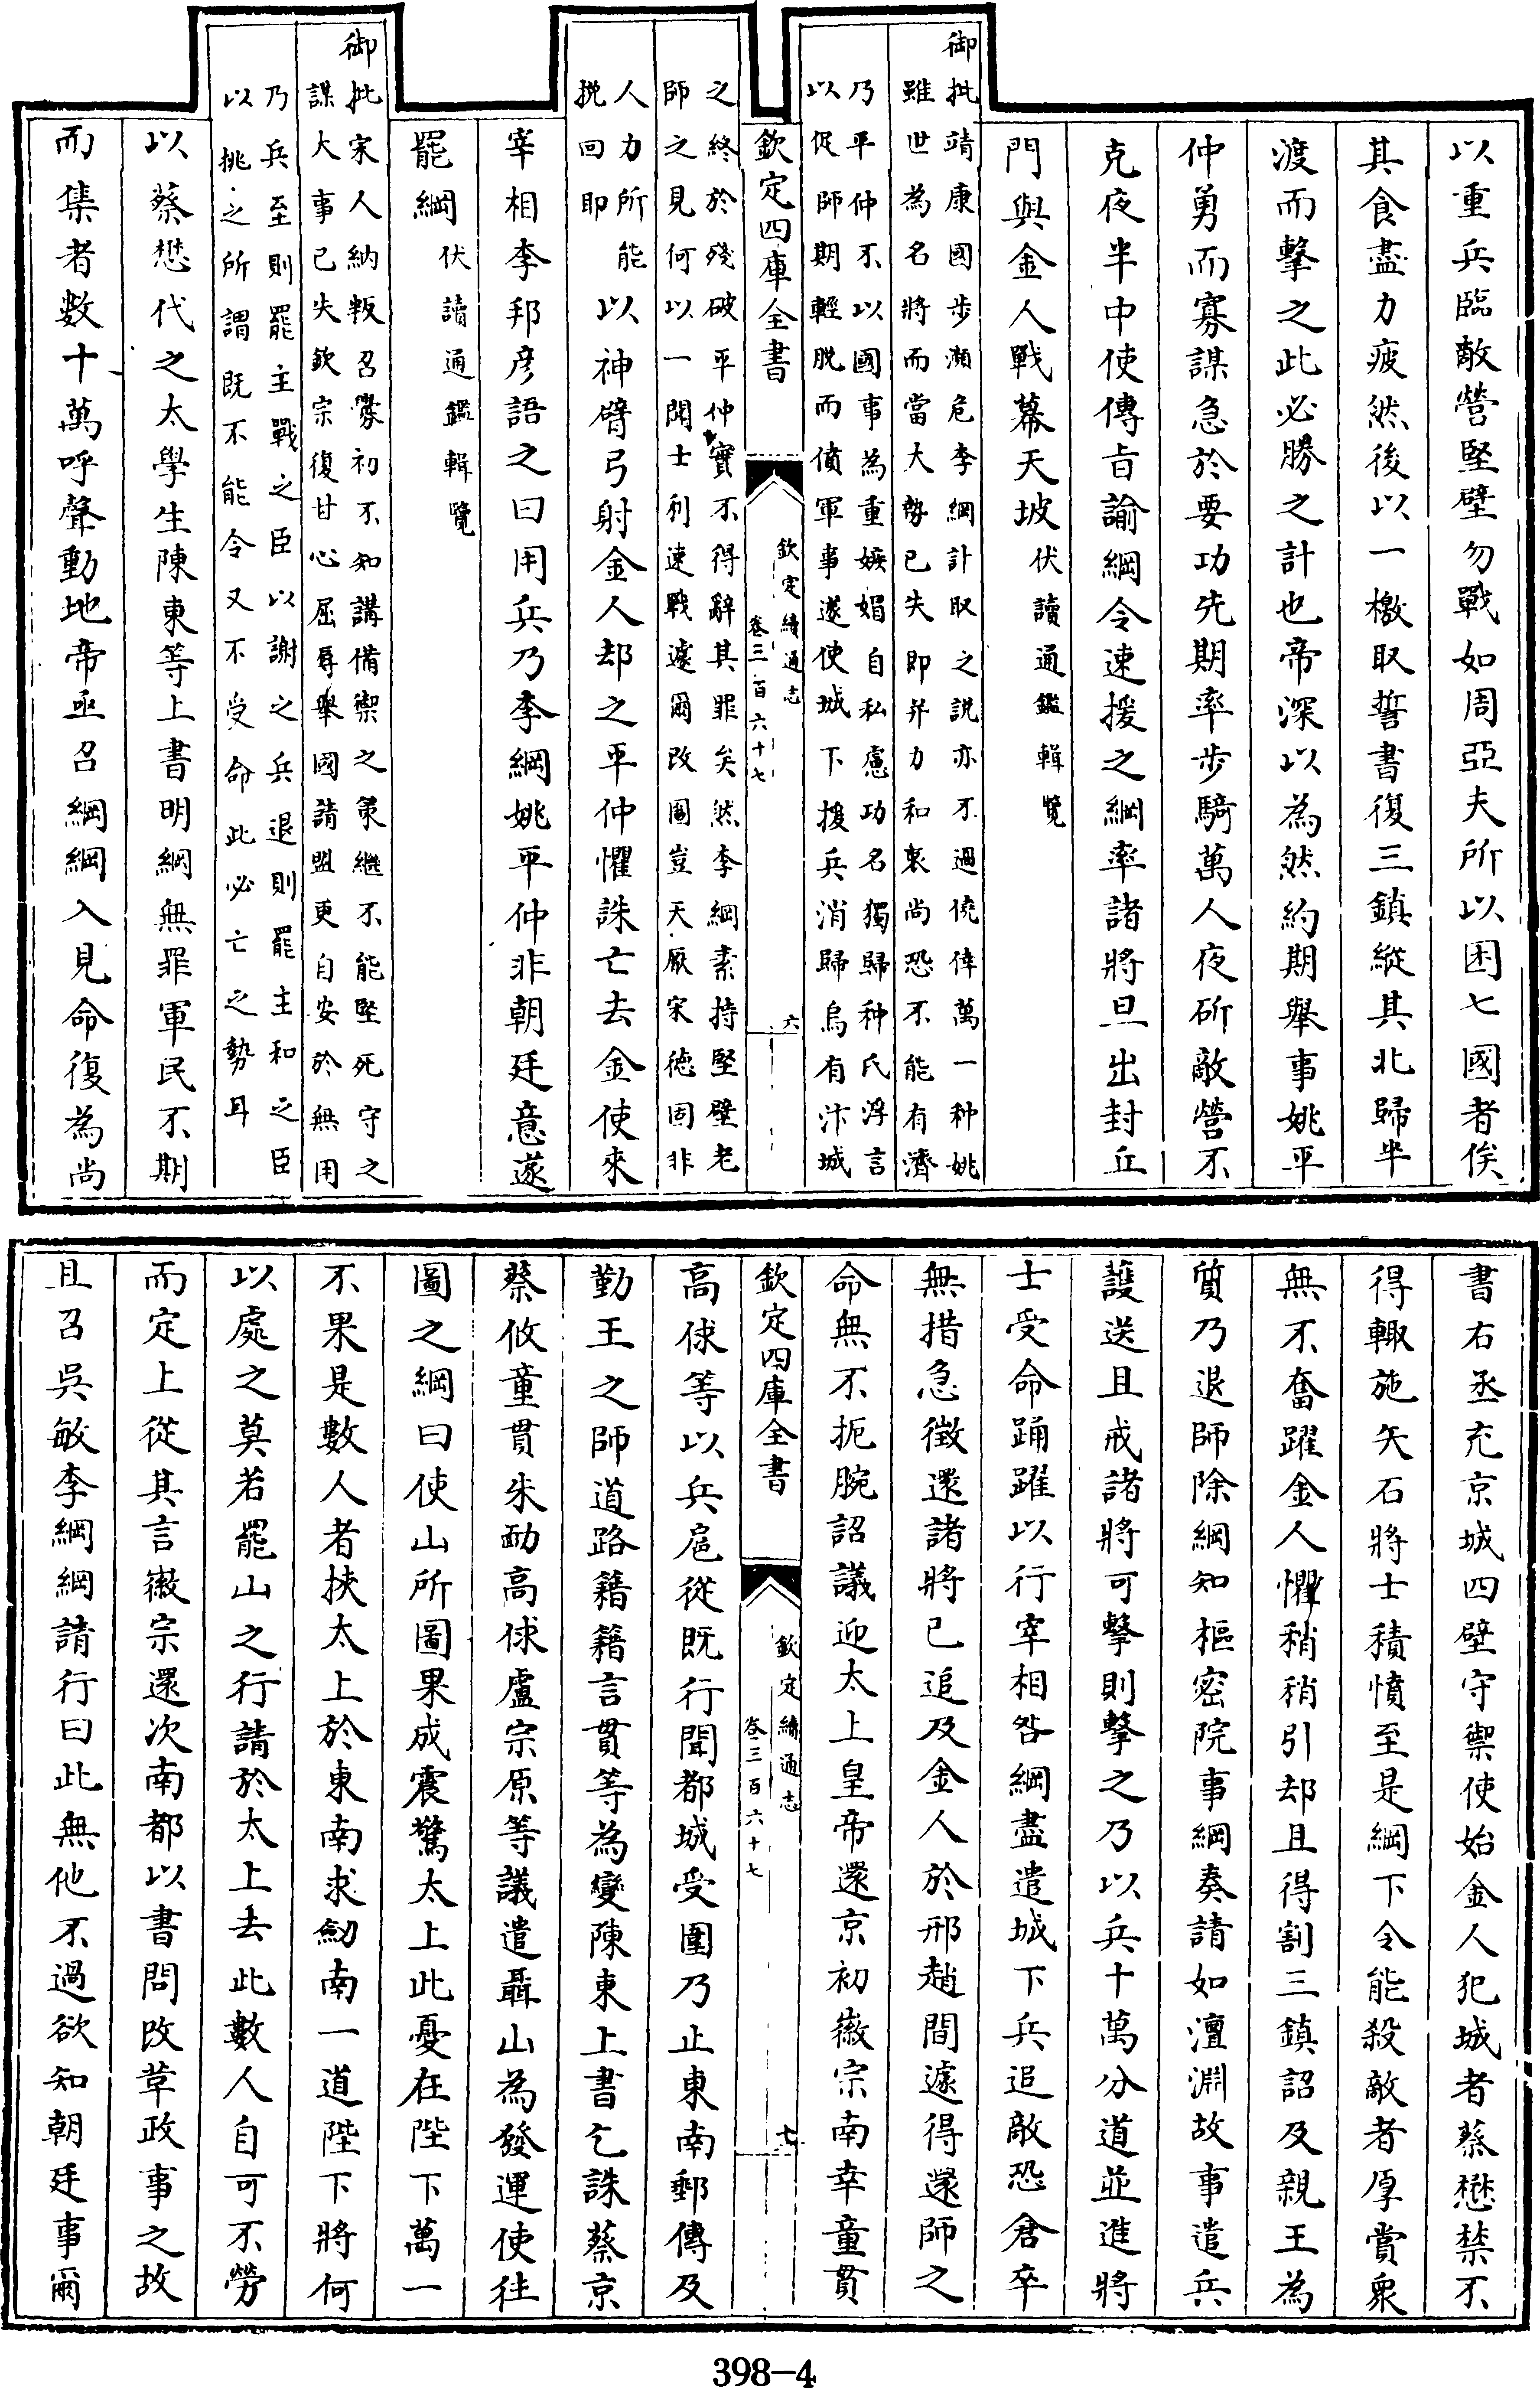 以重兵臨敵營堅壁勿戰如周亞夫所以困七國者俟
其食盡力疲然後以一檄取誓書復三鎮縱其北歸半
渡而擊之此必勝之計也帝深以為然約期舉事姚平
仲勇而寡謀急於要功先期率步騎萬人夜斫敵營不
克夜半中使傳旨諭綱令速援之綱率諸將旦出封丘
門與金人戰幕天坡伏讀通鑑輯覽
御批靖康國步瀕危李綱計取之說亦不過僥倖萬一种姚
雖世為名將而當大勢已失即并力和衷尚恐不能有濟
乃平仲不以國事為重嫉媢自私慮功名獨歸种氏浮言
以促師期輕脫而僨軍事遂使城下援兵消歸烏有汴城
欽定四庫全書
欽定續通志
卷三百六十七
六
之終於殘破平仲實不得辭其罪矣然李綱素持堅壁老
師之見何以一聞士利速戰遽爾改圖豈天厭宋德固非
人力所能
挽回耶
以神臂弓射金人却之平仲懼誅亡去金使來
宰相李邦彥語之曰用兵乃李綱姚平仲非朝廷意遂
罷綱伏讀通鑑輯覽
御批宋人納叛召釁初不知講備禦之策繼不能堅死守之
謀大事已失欽宗復甘心屈辱舉國請盟更自安於無用
乃兵至則罷主戰之臣以謝之兵退則罷主和之臣
以挑之所謂既不能令又不受命此必亡之勢耳
以蔡懋代之太學生陳東等上書明綱無罪軍民不期
而集者數十萬呼聲動地帝亟召綱綱入見命復為尚
書右丞充京城四壁守禦使始金人犯城者蔡懋禁不
得輙施矢石將士積憤至是綱下令能殺敵者厚賞衆
無不奮躍金人懼稍稍引却且得割三鎮詔及親王為
質乃退師除綱知樞密院事綱奏請如澶淵故事遣兵
護送且戒諸將可擊則擊之乃以兵十萬分道並進將
士受命踊躍以行宰相咎綱盡遣城下兵追敵恐倉卒
無措急徵還諸將已追及金人於邢趙間遽得還師之
命無不扼腕詔議迎太上皇帝還京初徽宗南幸童貫
欽定四庫全書
欽定續通志
卷三百六十七
七
高俅等以兵扈從既行聞都城受圍乃止東南郵傳及
勤王之師道路籍籍言貫等為變陳東上書乞誅蔡京
蔡攸童貫朱勔高俅盧宗原等議遣聶山為發運使往
圖之綱曰使山所圖果成震驚太上此憂在陛下萬一
不果是數人者挾太上於東南求劍南一道陛下將何
以處之莫若罷山之行請於太上去此數人自可不勞
而定上從其言徽宗還次南都以書問改革政事之故
且召吳敏李綱綱請行曰此無他不過欲知朝廷事爾
398-4